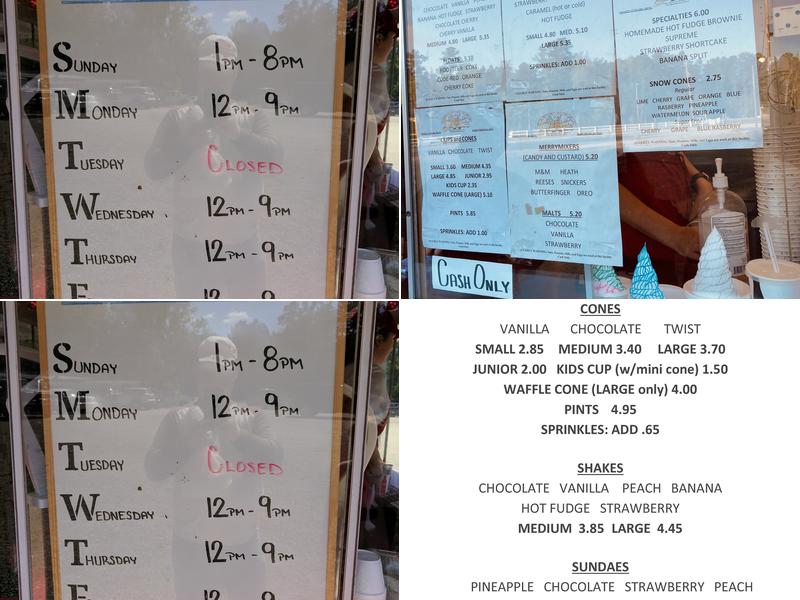 SUNDAY 1PM - 8PM
MONDAY 12PM - 9PM
TUESDAY CLOSED
WEDNESDAY 12PM - 9PM
THURSDAY 12PM - 9PM
CHOCOLATE VANILLA STRAWBERRY
BANANA HOT FUDGE STRAWBERRY
CHOCOLATE CHERRY
CHERRY VANILLA
MEDIUM 4.80 LARGE 5.35
FLOATS 3.10
ROOTBEER COKE
CODE RED ORANGE
CHERRY COKE
STRAWBERRY CHOCOLATE
CARAMEL (hot or cold)
HOT FUDGE
SMALL 4.80 MED. 5.10
LARGE 5.35
SPRINKLES: ADD 1.00
SPECIALTIES 6.00
HOMEMADE HOT FUDGE BROWNIE
SUPREME
STRAWBERRY SHORTCAKE
BANANA SPLIT
SNOW CONES 2.75
Regular
LIME CHERRY GRAPE ORANGE BLUE
RASBERRY PINEAPPLE
WATERMELON SOUR APPLE
CHERRY GRAPE BLUE RASBERRY
CUPS and CONES
VANILLA CHOCOLATE TWIST
SMALL 3.60 MEDIUM 4.35
LARGE 4.85 JUNIOR 2.95
KIDS CUP 2.35
WAFFLE CONE (LARGE) 5.10
PINTS 5.85
SPRINKLES: ADD 1.00
MERRYMIXERS
(CANDY AND CUSTARD) 5.20
M&M HEATH
REESES SNICKERS
BUTTERFINGER OREO
MALTS 5.20
CHOCOLATE
VANILLA
STRAWBERRY
CASH ONLY
SUNDAY 1PM - 8PM
MONDAY 12PM - 9PM
TUESDAY CLOSED
WEDNESDAY 12PM - 9PM
THURSDAY 12PM - 9PM
CONES
VANILLA CHOCOLATE TWIST
SMALL 2.85 MEDIUM 3.40 LARGE 3.70
JUNIOR 2.00 KIDS CUP (w/mini cone) 1.50
WAFFLE CONE (LARGE only) 4.00
PINTS 4.95
SPRINKLES: ADD .65
SHAKES
CHOCOLATE VANILLA PEACH BANANA
HOT FUDGE STRAWBERRY
MEDIUM 3.85 LARGE 4.45
SUNDAES
PINEAPPLE CHOCOLATE STRAWBERRY PEACH